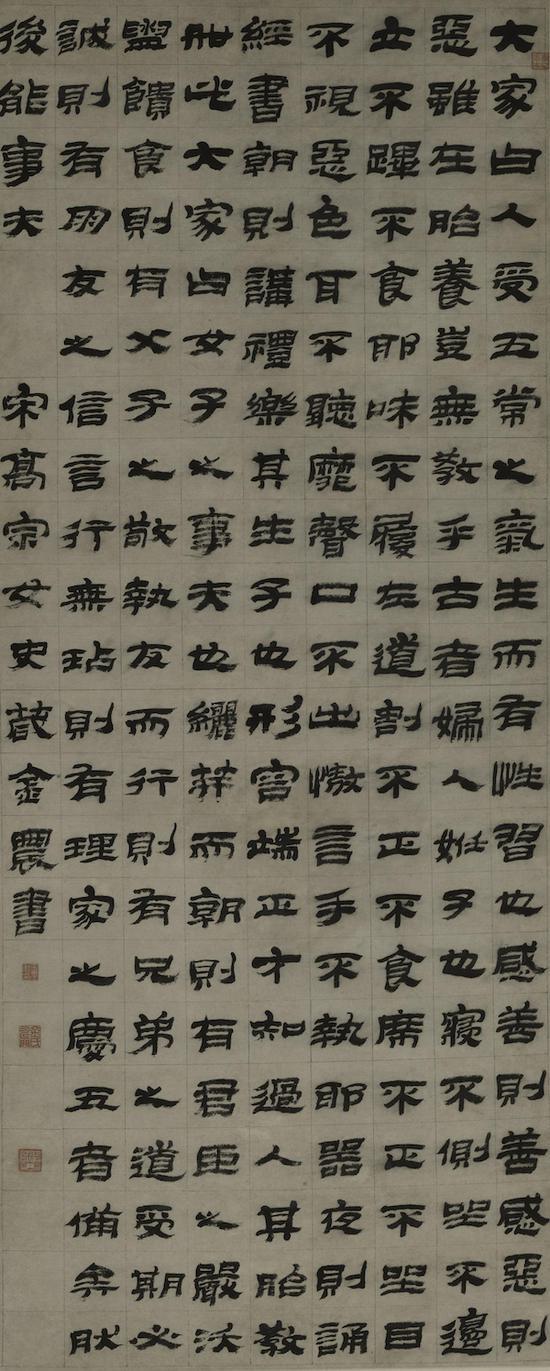 大家曰人受五常之氣生而有性習也感善則善感惡則
惡雖在胎養豈無教乎古者婦人妊子也寢不側坐不邊
立不蹕不食耶味不履左道割不正不食席不正不坐目
不視惡色耳不聽靡聲口不出慠言手不執耶器夜則誦
經書朝則講禮樂其生子也形容端正才知過人其胎教
如此大家曰女子之事夫也纚笄而朝則有君臣之嚴沃
盥饋食則有父子之敬執友而行則有兄弟之道受期必
誠則有朋友之信言行無玷則有理家之慶五者備矣肰
後能事夫
宋高宗女史箴金農書